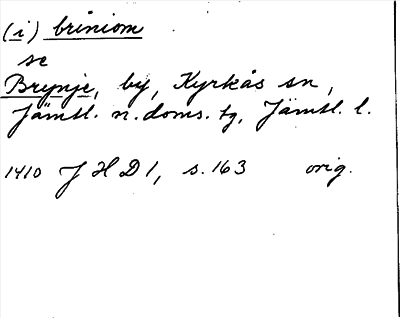 (i) briniom
se
Brynje, by, Kyrkås sn,
Jämtl. n. doms. tg, Jämtl. l.
1410 J H D 1, s. 163 orig.